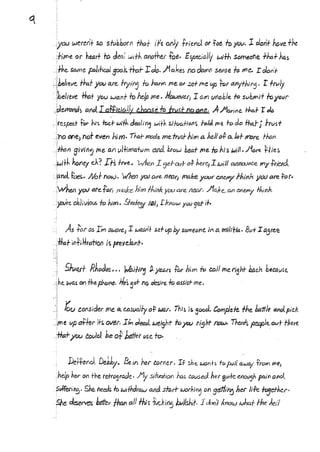 9
you weren't so stubborn that it's only friend or foe to you. I don't have the
time or heart to deal with another foe. Especially with someone that has
the same political goals that I do. Makes no damn sense to me. I don't
believe that you are trying to harm me or set me up for anything. I truly
believe that you want to help me. However, I am unable to submit to your
demands and I officially choose to trust no one. A Marine that I do
respect for his tact with dealing with situations told me to do that; trust
no one, not even him. That made me trust him a hell of a lot more than
than giving me an ultimatum and brow beat me to his will. More flies
with honey eh? It's true. When I get out of here, I will announce my friends
and foes. Not now. When you are near, make your enemy think you are far.
When you are far, make him think you are near. Make an enemy think
you're oblivious to him. Strategy 101, I know you got it.
As far as I'm aware, I wasn't set up by someone in a militia. But I agree
that infiltration is prevelant.
Stuart Rhodes... Waiting 2 years for him to call me right back because
he was on the phone. He's got no desire to assist me.
You consider me a casualty of war. This is good. Complete the battle and pick
me up after it's over. I'm dead weight to you right now. There's people out there
that you could be of better use to.
Defferal Debby. Be in her corner. If she wants to pull away from me,
help her on the retrograde. My situation has caused her quite enough pain and
suffering. She needs to withdraw and start working on getting her life together.
She deserves better than all this fucking bullshit. I don't know what the hell